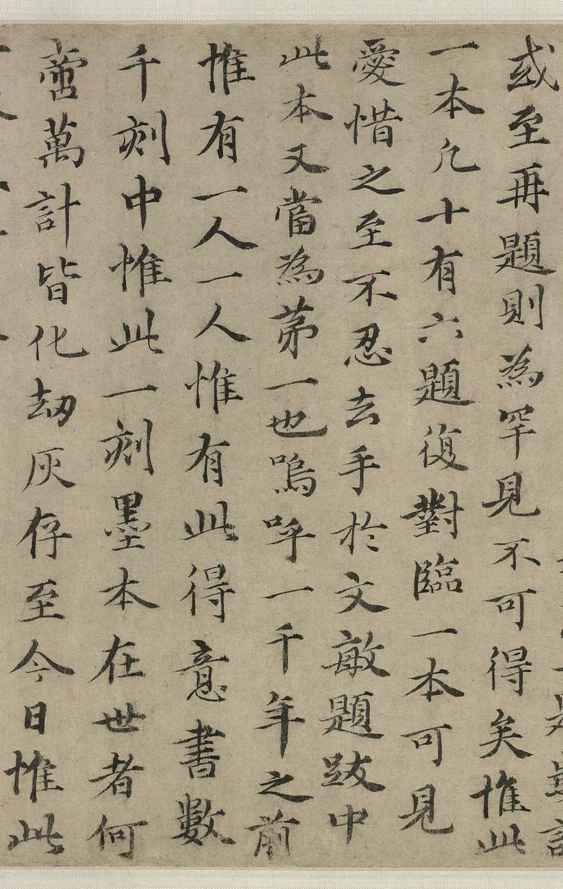 或至再題則為罕見不可得矣惟此
一本凡十有六題復對臨一本可見
愛惜之至不忍去手於文敏題跋中
此本又當為第一也嗚呼一千年之前
惟有一人一人惟有此得意書數
千刻中惟此一刻墨本在世者何
啻萬計皆化劫灰存至今日惟此